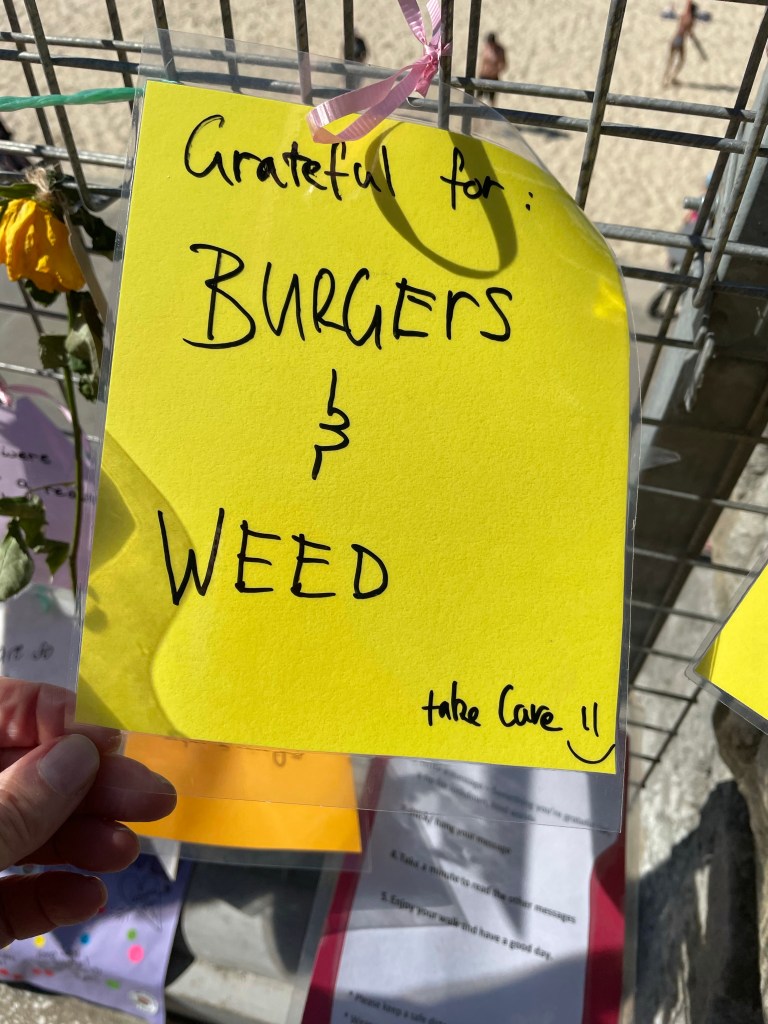 Grateful for:
BURGErS
&
WEED
take Care
were
4. Take a minute to read the other messages
5. Enjoy your walk and have a good day.